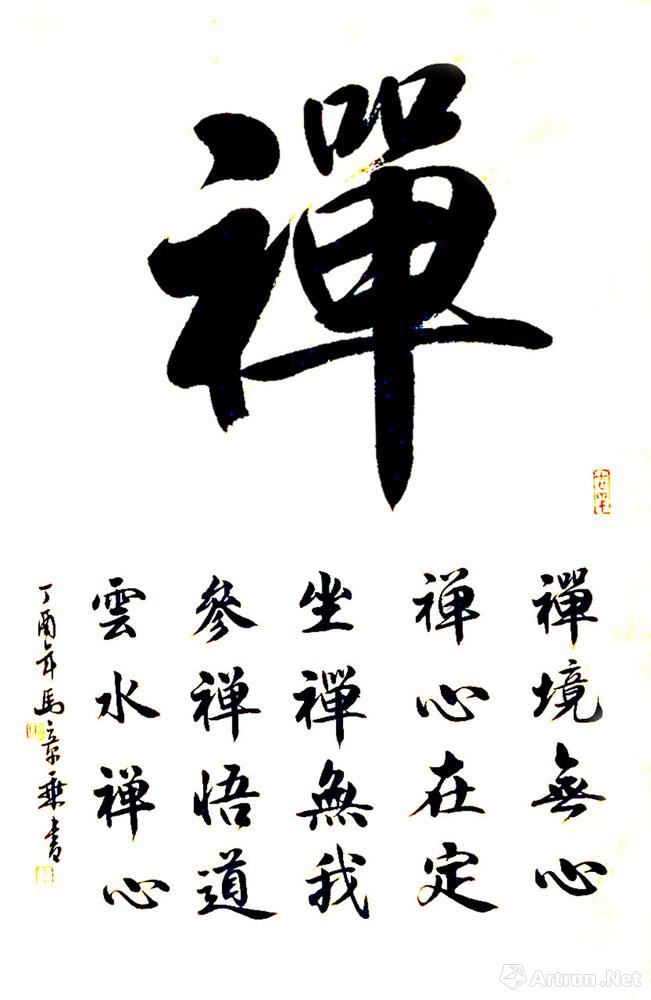 禪
禪境無心
禅心在定
坐禪無我
參禅悟道
雲水禅心
丁酉年馬章乘書
Artron.Net